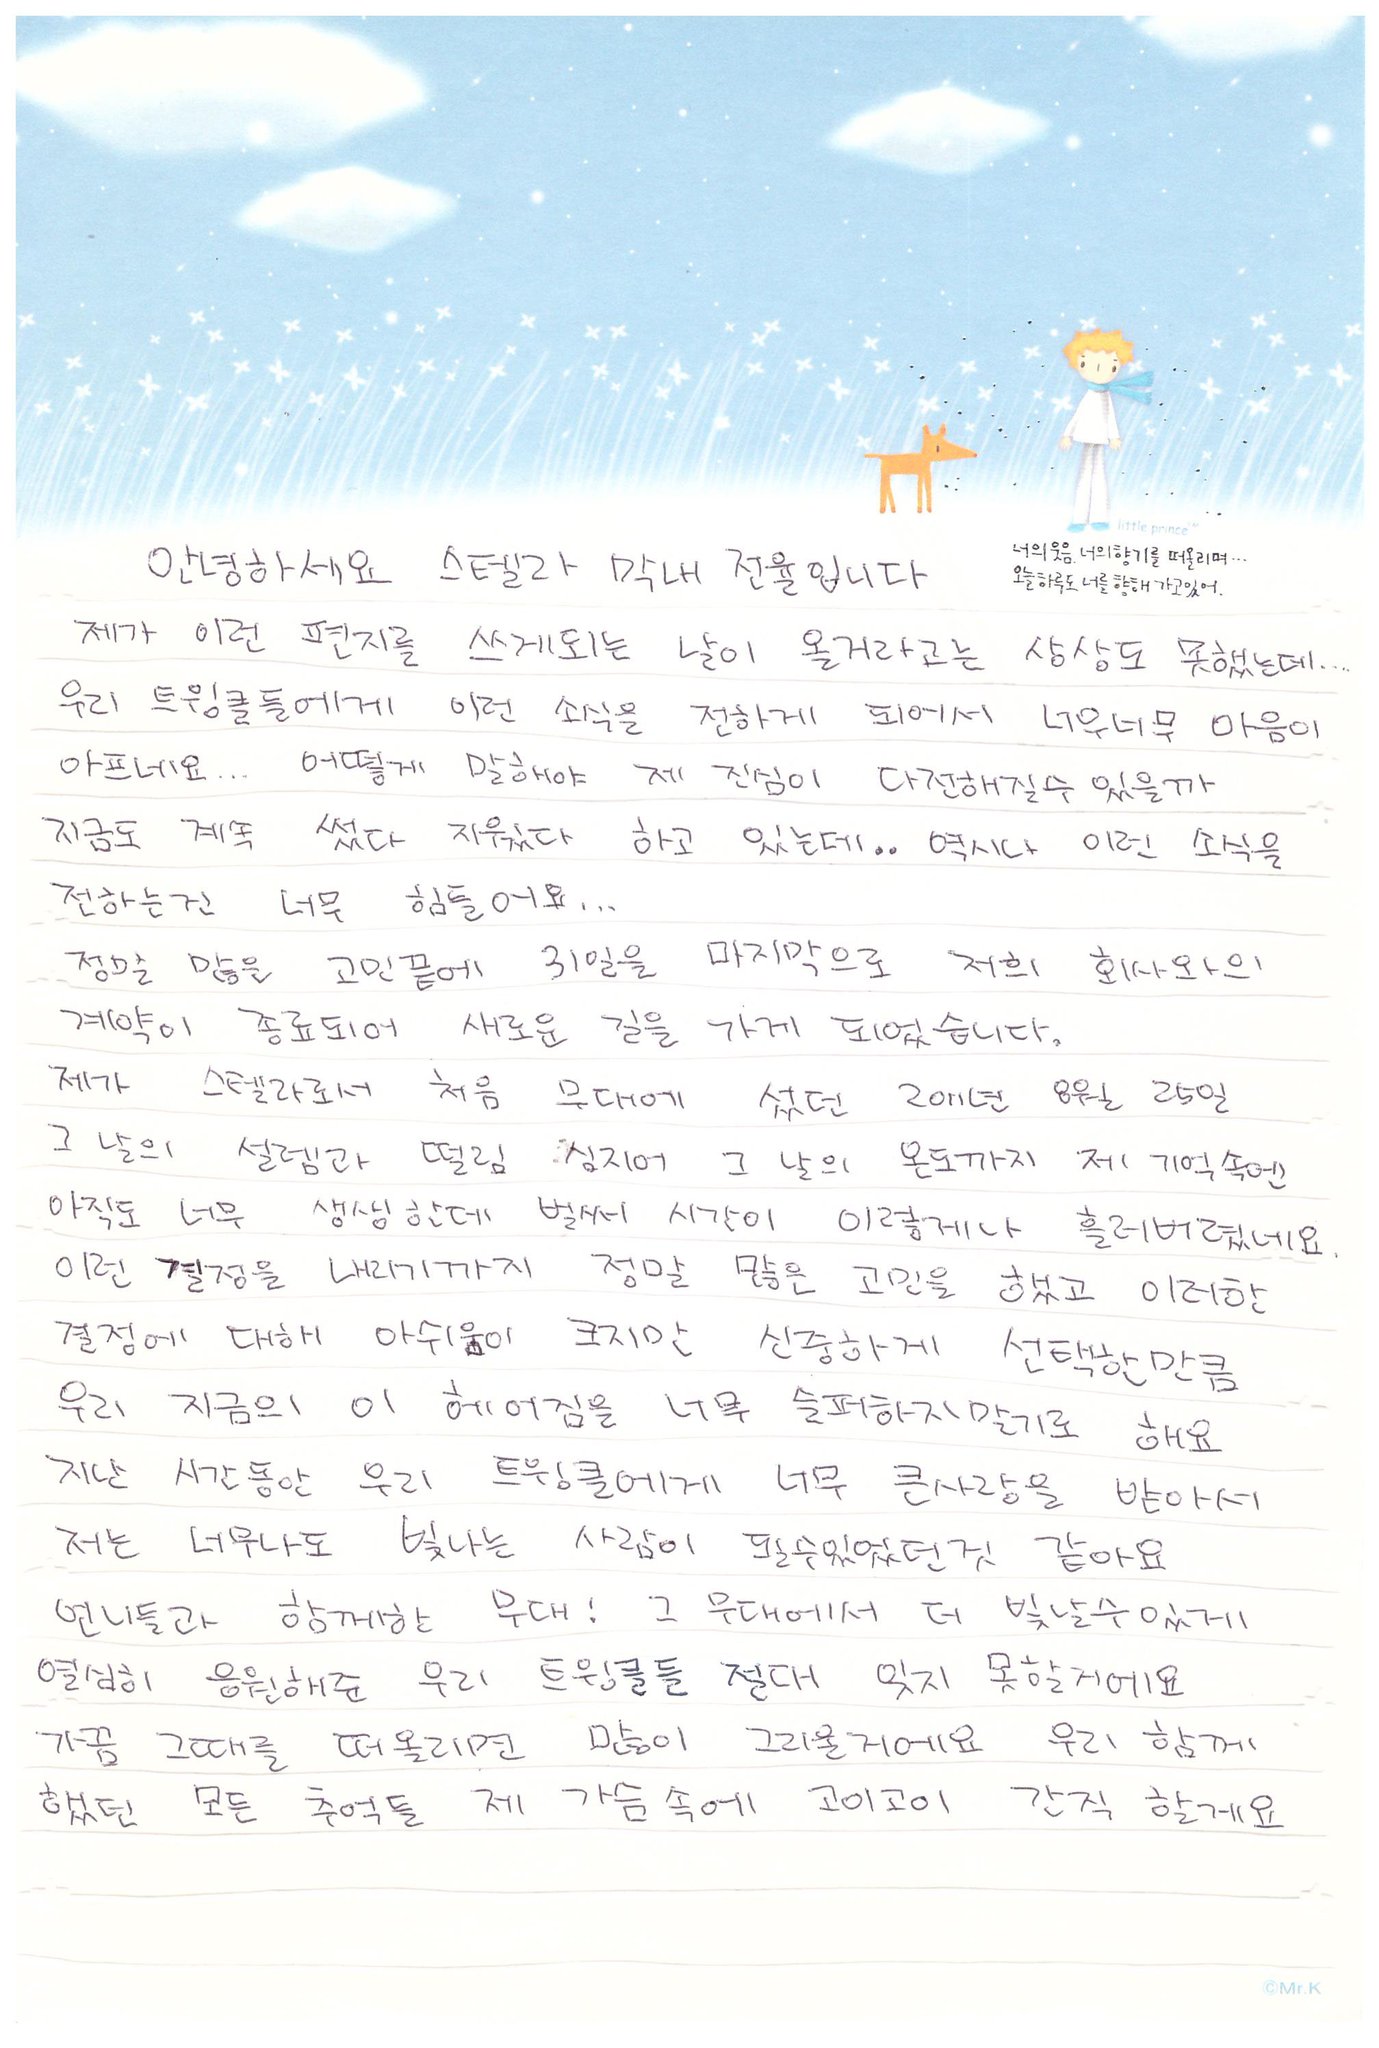 little prince™
너의 웃음. 너의 향기를 떠올리며...
오늘 하루도 너를 향해 가고있어.
안녕하세요 스텔라 막내 전율입니다
제가 이런 편지를 쓰게되는 날이 올거라고는 상상도 못했는데....
우리 트윙클들에게 이런 소식을 전하게 되어서 너무너무 마음이
아프네요... 어떻게 말해야 제 진심이 다전해질수 있을까
지금도 계속 썼다 지웠다 하고 있는데.. 역시나 이런 소식을
전하는건 너무 힘들어요...
정말 많은 고민끝에 31일을 마지막으로 저희 회사와의
계약이 종료되어 새로운 길을 가게 되었습니다.
제가 스텔라로서 처음 무대에 섰던 2011년 8월 25일
그 날의 설렘과 떨림 심지어 그 날의 온도까지 제 기억속엔
아직도 너무 생생한데 벌써 시간이 이렇게나 흘러버렸네요.
이런 결정을 내리기까지 정말 많은 고민을 했고 이러한
결정에 대해 아쉬움이 크지만 신중하게 선택한만큼
우리 지금의 이 헤어짐을 너무 슬퍼하지말기로 해요
지난 시간동안 우리 트윙클에게 너무 큰사랑을 받아서
저는 너무나도 빛나는 사람이 될수있었던것 같아요
언니들과 함께한 무대! 그 무대에서 더 빛날수있게
열심히 응원해준 우리 트윙클들 절대 잊지 못할거에요
가끔 그때를 떠올리면 많이 그리울거에요 우리 함께
했던 모든 추억들 제 가슴속에 고이고이 간직 할게요
©Mr.K